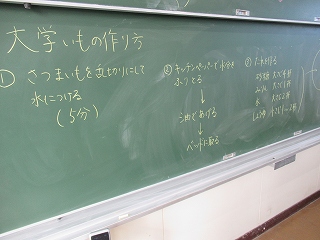 大学いもの作り方
① さつまいもを乱切りにして
水につける
(5分)
② キッチンペーパーで水分を
ふきとる
↓
油であげる
↓
バットに取る
③ たれを作る
砂糖 大さじ4杯
みりん 大さじ
水 大さじ
しょうゆ 小さじ